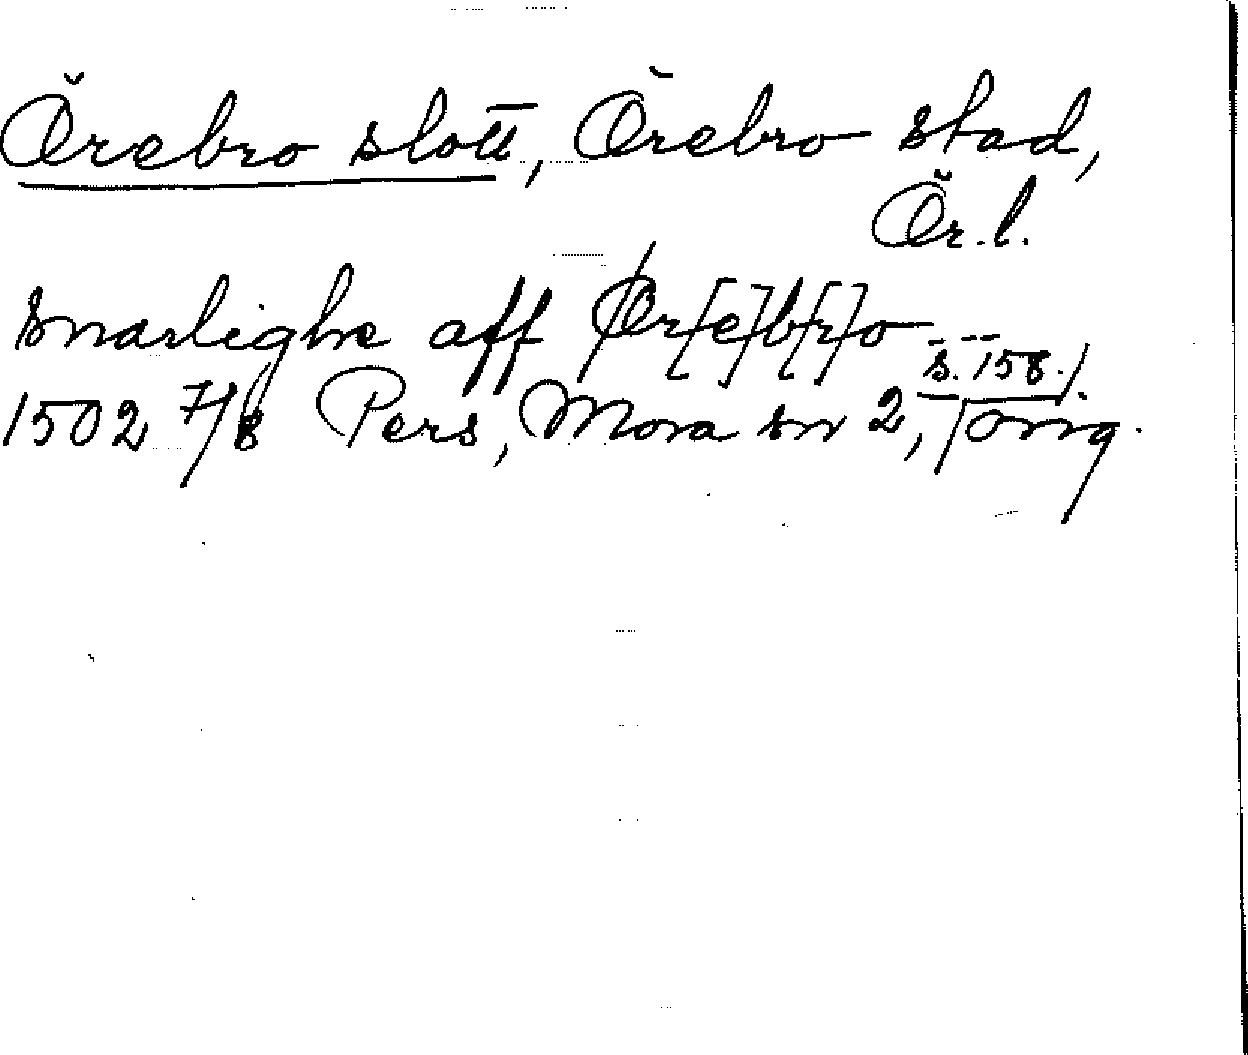 Örebro slott, Örebro stad,
Ör. l.
snarlighe aff Ør[e]b[r]o
s. 158./
1502 7/8 Pers, Mora sn 2, /orig.